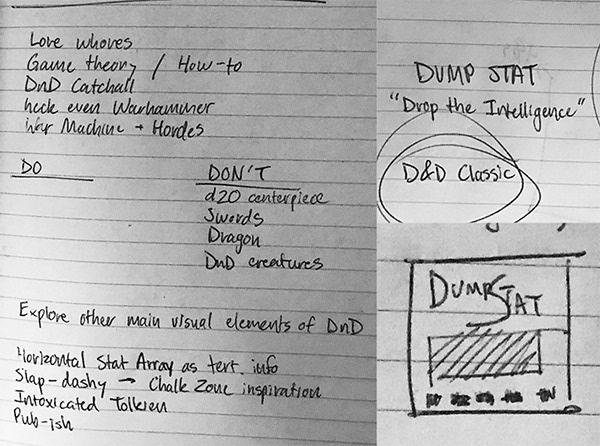 Love whores
Game theory / How-to
DnD Catchall
heck even Warhammer
War Machine + Hordes
DO
DON'T
d20 centerpiece
Swords
Dragon
DnD creatures
Explore other main visual elements of DnD
Horizontal Stat Array as tert. info
Slap-dashy → Chalk Zone inspiration
Intoxicated Tolkien
Pub-ish
DUMP STAT
"Drop the Intelligence"
D&D Classic
DUMP STAT